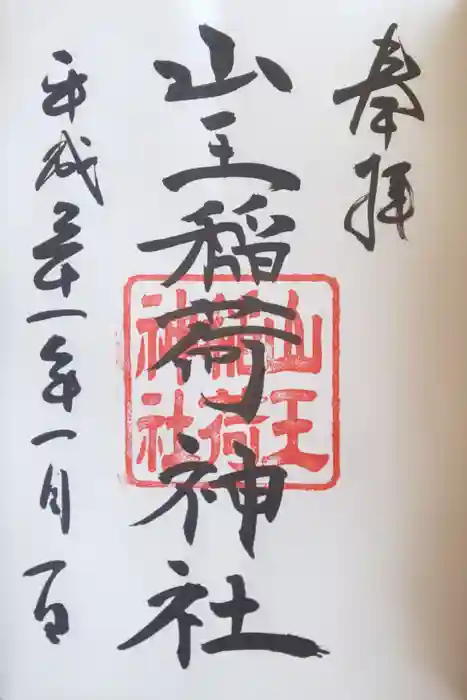 奉拝
山王稲荷神社
山王稲荷神社
平成三十一年一月一日